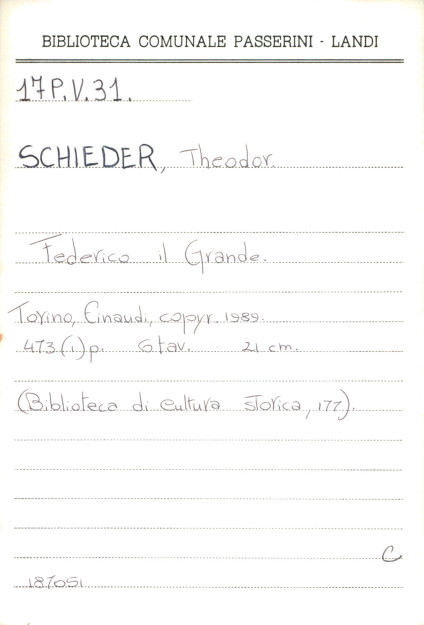 BIBLIOTECA COMUNALE PASSERINI - LANDI
17P.V.31.
SCHIEDER, Theodor.
Federico il Grande.
Torino, Einaudi, copyr. 1989.
473.(1)p. 6 tav. 21 cm.
(Biblioteca di cultura storica, 177).
C
187051